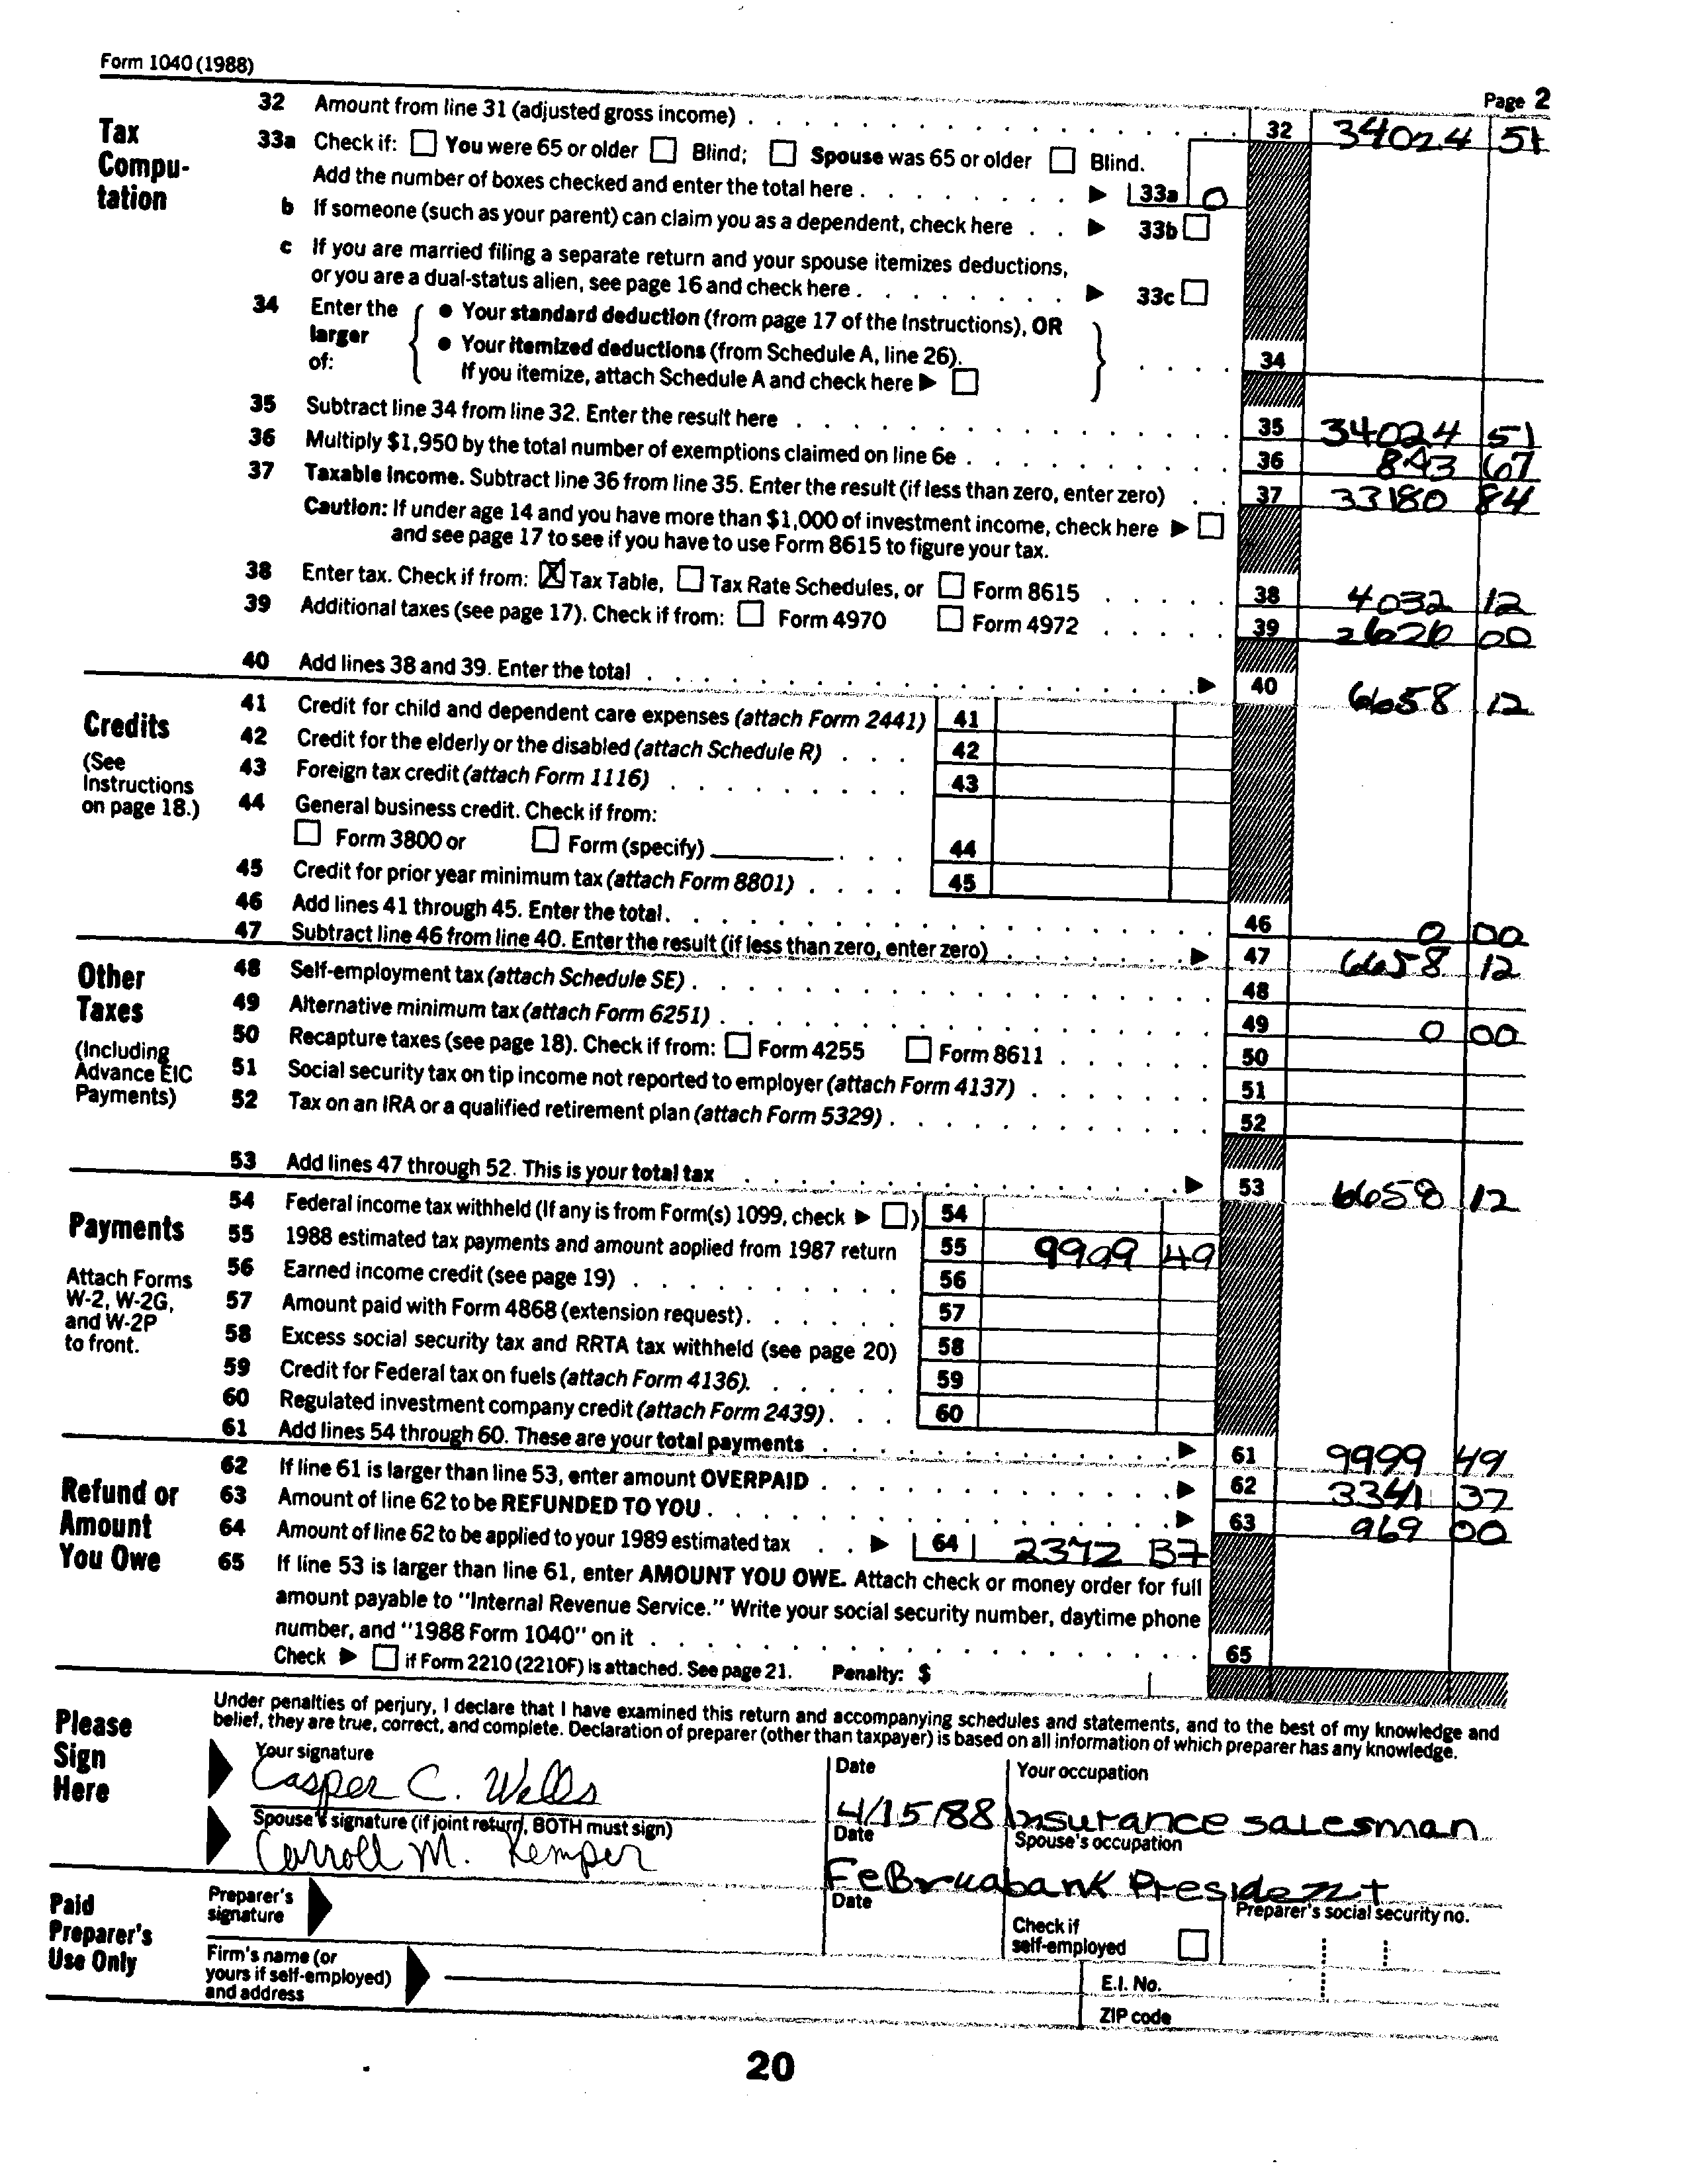 Form 1040 (1988)
Page 2
Tax Compu-tation
32 Amount from line 31 (adjusted gross income) 32 34024 51
33a Check if: You were 65 or older Blind; Spouse was 65 or older Blind.
Add the number of boxes checked and enter the total here 33a 0
b If someone (such as your parent) can claim you as a dependent, check here 33b
c If you are married filing a separate return and your spouse itemizes deductions,
or you are a dual-status alien, see page 16 and check here 33c
34 Enter the larger of:
• Your standard deduction (from page 17 of the Instructions), OR
• Your itemized deductions (from Schedule A, line 26).
If you itemize, attach Schedule A and check here
34
35 Subtract line 34 from line 32. Enter the result here 35 34024 51
36 Multiply $1,950 by the total number of exemptions claimed on line 6e 36 843 67
37 Taxable income. Subtract line 36 from line 35. Enter the result (if less than zero, enter zero) 37 33180 84
Caution: If under age 14 and you have more than $1,000 of investment income, check here
and see page 17 to see if you have to use Form 8615 to figure your tax.
38 Enter tax. Check if from: X Tax Table, Tax Rate Schedules, or Form 8615 38 4032 12
39 Additional taxes (see page 17). Check if from: Form 4970 Form 4972 39 2626 00
40 Add lines 38 and 39. Enter the total 40 6658 12
Credits
(See Instructions on page 18.)
41 Credit for child and dependent care expenses (attach Form 2441) 41
42 Credit for the elderly or the disabled (attach Schedule R) 42
43 Foreign tax credit (attach Form 1116) 43
44 General business credit. Check if from:
Form 3800 or Form (specify) 44
45 Credit for prior year minimum tax (attach Form 8801) 45
46 Add lines 41 through 45. Enter the total. 46 0 00
47 Subtract line 46 from line 40. Enter the result (if less than zero, enter zero) 47 6658 12
Other Taxes
(Including Advance EIC Payments)
48 Self-employment tax (attach Schedule SE) 48
49 Alternative minimum tax (attach Form 6251) 49 0 00
50 Recapture taxes (see page 18). Check if from: Form 4255 Form 8611 50
51 Social security tax on tip income not reported to employer (attach Form 4137) 51
52 Tax on an IRA or a qualified retirement plan (attach Form 5329) 52
53 Add lines 47 through 52. This is your total tax 53 6658 12
Payments
Attach Forms W-2, W-2G, and W-2P to front.
54 Federal income tax withheld (If any is from Form(s) 1099, check ) 54
55 1988 estimated tax payments and amount applied from 1987 return 55 9909 49
56 Earned income credit (see page 19) 56
57 Amount paid with Form 4868 (extension request) 57
58 Excess social security tax and RRTA tax withheld (see page 20) 58
59 Credit for Federal tax on fuels (attach Form 4136). 59
60 Regulated investment company credit (attach Form 2439) 60
61 Add lines 54 through 60. These are your total payments 61 9999 49
Refund or Amount You Owe
62 If line 61 is larger than line 53, enter amount OVERPAID 62 3341 37
63 Amount of line 62 to be REFUNDED TO YOU 63 969 00
64 Amount of line 62 to be applied to your 1989 estimated tax 64 2372 B7
65 If line 53 is larger than line 61, enter AMOUNT YOU OWE. Attach check or money order for full
amount payable to "Internal Revenue Service." Write your social security number, daytime phone
number, and "1988 Form 1040" on it 65
Check if Form 2210 (2210F) is attached. See page 21. Penalty: $
Please Sign Here
Under penalties of perjury, I declare that I have examined this return and accompanying schedules and statements, and to the best of my knowledge and
belief, they are true, correct, and complete. Declaration of preparer (other than taxpayer) is based on all information of which preparer has any knowledge.
Your signature Date Your occupation
Casper C. Wells 4/15/88 Insurance salesman
Spouse's signature (if joint return, BOTH must sign) Date Spouse's occupation
Carroll M. Kemper FeBruabank President
Paid Preparer's Use Only
Preparer's signature Date Check if self-employed Preparer's social security no.
Firm's name (or yours if self-employed) and address
E.I. No.
ZIP code
20